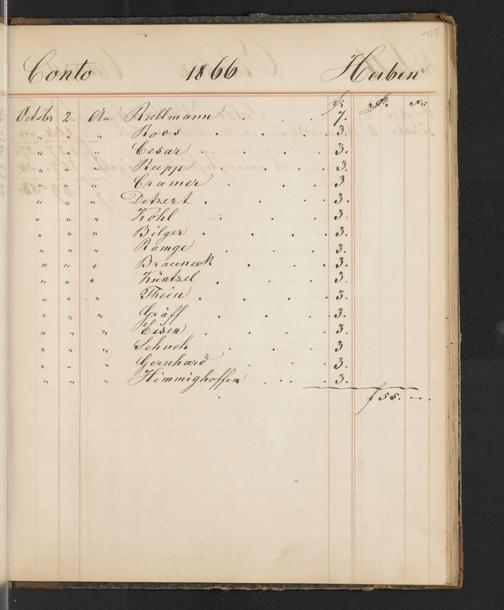 115
Conto 1866 Haben
fr.
October 2. An Rullmann . . . . 7.
" " " Roos . . . . 3.
" " " Cesar . . . . 3.
" " " Rupp . . . . 3.
" " " Cramer . . . . 3
" " " Detzert . . . . 3.
" " " Kohl . . . . 3.
" " " Bilger . . . . 3.
" " " Ramge . . . . 3.
" " " Brauneck . . . . 3.
" " " Küntzel . . . . 3.
" " " Thein . . . . 3.
" " " Gräff . . . . 3.
" " " Eisen . . . . 3.
" " " Schuch . . . . 3
" " " Gernhard . . . . 3.
" " " Himmighoffen . . . . 3.
f 55. —